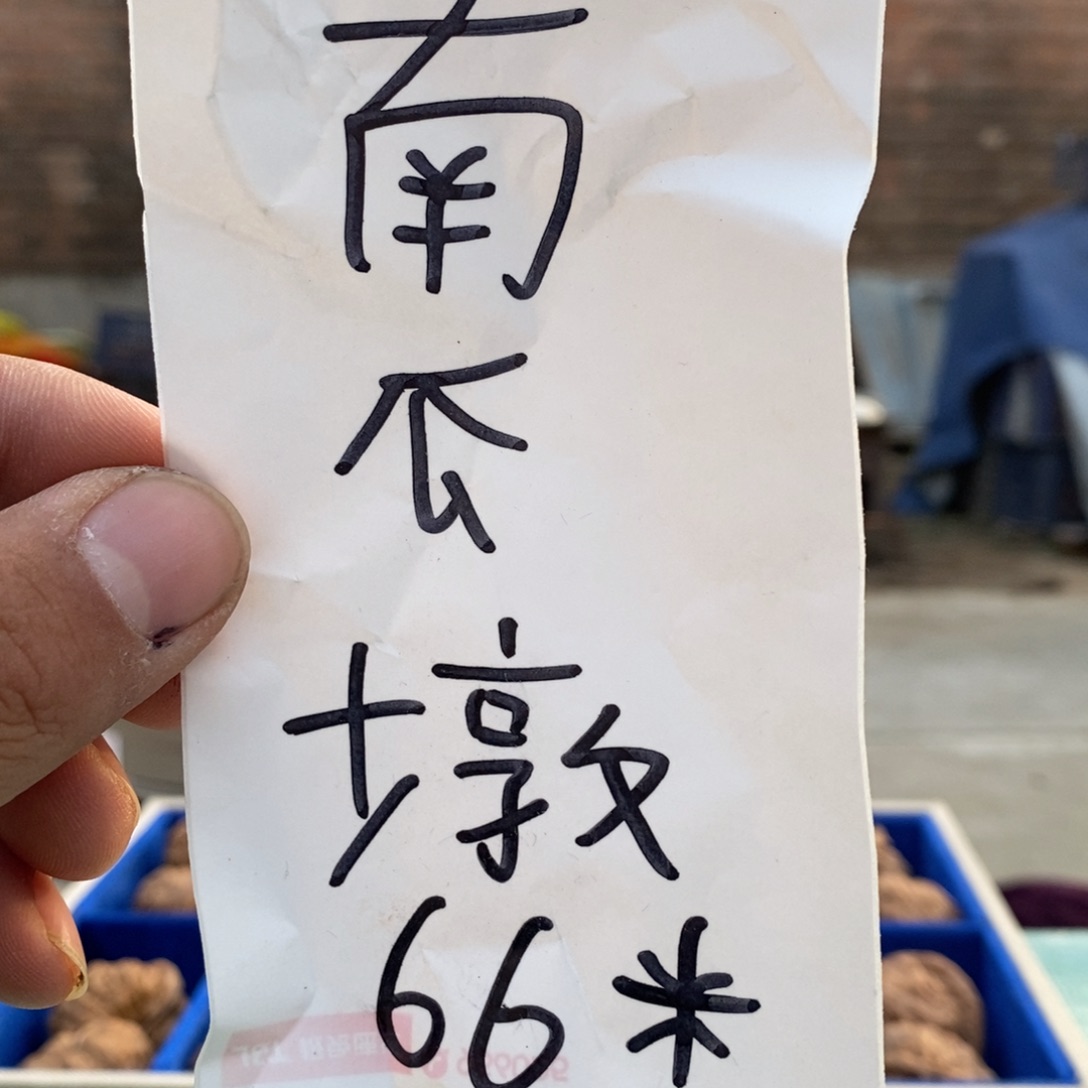 南
瓜
墩
66米